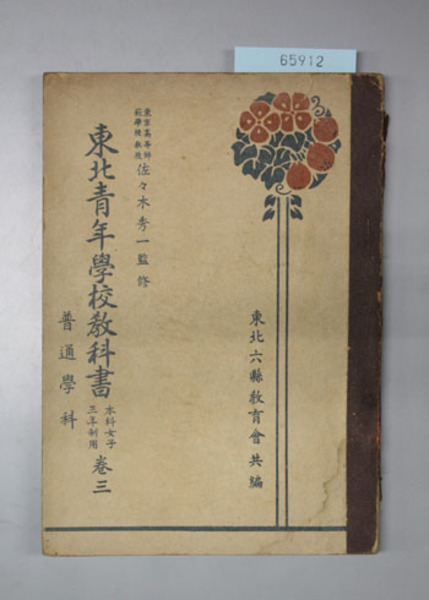 65912
東北六縣敎育會共編
東京高等師
範學校敎授
佐々木秀一監修
東北青年學校敎科書
本科女子
三年制用
卷三
普通學科